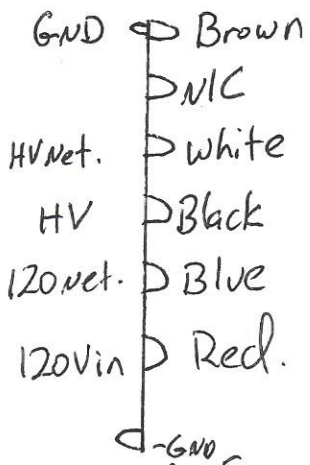 GND Brown
N/C
HVNet. White
HV Black
120Net. Blue
120Vin Red.
-GND